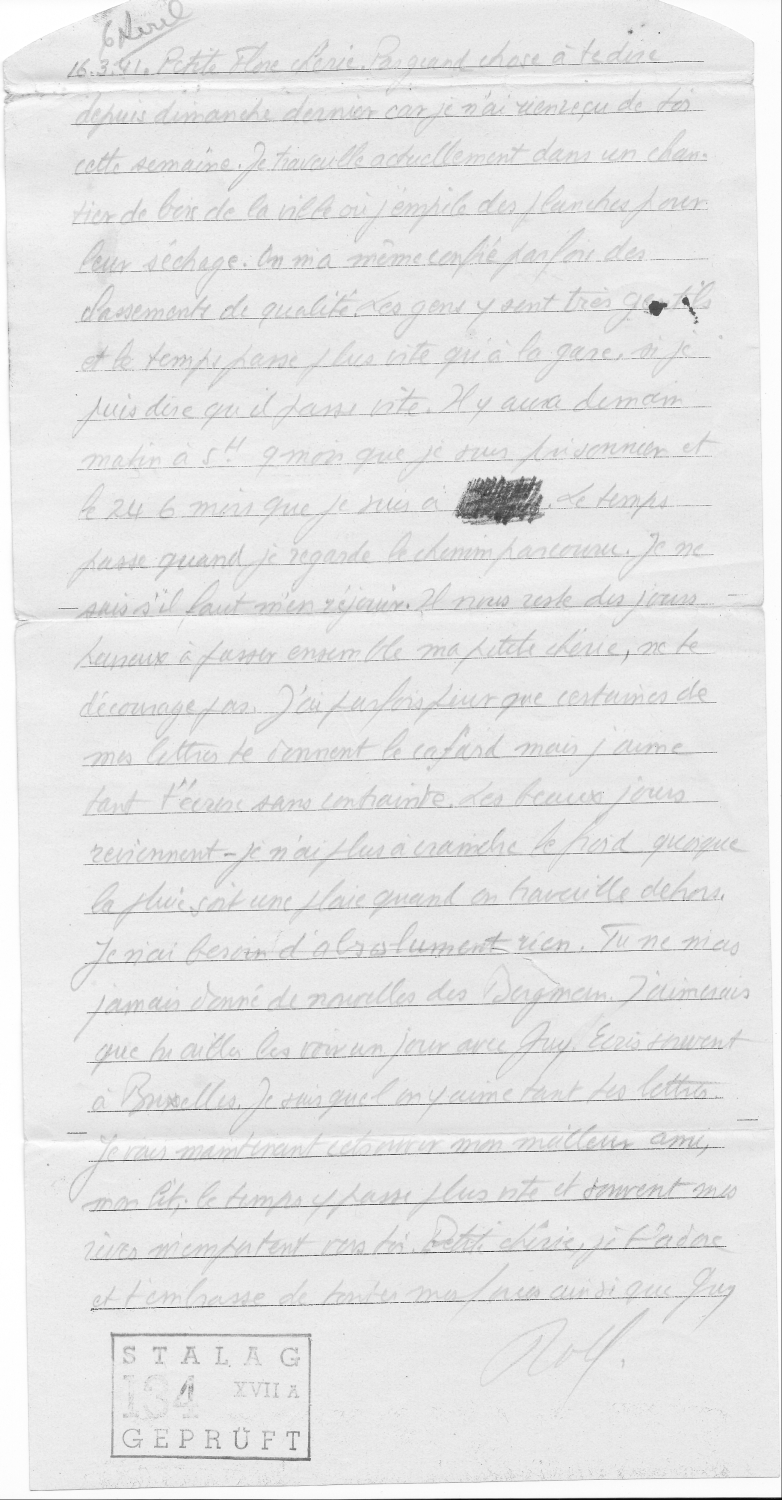 6 Avril
16.3.41. Petite Flore chérie. Pas grand chose à te dire
depuis dimanche dernier car je n'ai rien reçu de toi
cette semaine. Je travaille actuellement dans un chan-
tier de bois de la ville où j'empile des planches pour
leur séchage. On m'a même confié parfois des
classements de qualité. Les gens y sont très gentils
et le temps passe plus vite qu'à la gare, si je
puis dire qu'il passe vite. Il y aura demain
matin à 5H 9 mois que je suis prisonnier et
le 24 6 mois que je suis à . Le temps
passe quand je regarde le chemin parcouru. Je ne
sais s'il faut m'en réjouir. Il nous reste des jours
heureux à passer ensemble ma petite chérie, ne te
décourage pas. J'ai parfois peur que certaines de
mes lettres te donnent le cafard mais j'aime
tant t'écrire sans contrainte. Les beaux jours
reviennent - je n'ai plus à craindre le froid quoique
la pluie soit une plaie quand on travaille dehors.
Je n'ai besoin d'absolument rien. Tu ne m'as
jamais donné de nouvelles des Bergman. J'aimerais
que tu ailles les voir un jour avec Guy. Ecris souvent
à Bruxelles. Je sais quel on y aime tant tes lettres.
Je vais maintenant retrouver mon meilleur ami,
mon lit; le temps y passe plus vite et souvent mes
rêves m'emportent vers toi. Petite chérie, je t'adore
et t'embrasse de toutes mes forces ainsi que Guy
STALAG
134 XVII A
GEPRÜFT